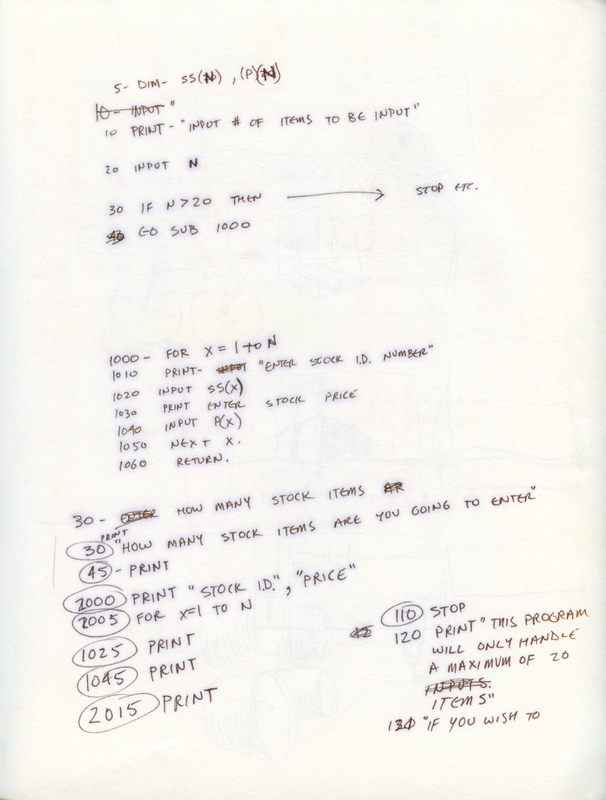 5- DIM- SS(N) , (P)(N)
10- INPUT "
10 PRINT- "INPUT # OF ITEMS TO BE INPUT"
20 INPUT N
30 IF N>20 THEN → STOP ETC.
GO SUB 1000
1000- FOR X=1 TO N
1010 PRINT- "ENTER STOCK I.D. NUMBER"
1020 INPUT SS(X)
1030 PRINT ENTER STOCK PRICE
1040 INPUT P(X)
1050 NEXT X.
1060 RETURN.
30- ENTER HOW MANY STOCK ITEMS
30 PRINT "HOW MANY STOCK ITEMS ARE YOU GOING TO ENTER"
45- PRINT
2000 PRINT "STOCK I.D.", "PRICE"
2005 FOR X=1 TO N
1025 PRINT
1045 PRINT
2015 PRINT
110 STOP
120 PRINT "THIS PROGRAM
WILL ONLY HANDLE
A MAXIMUM OF 20
INPUTS.
ITEMS"
130 "IF YOU WISH TO